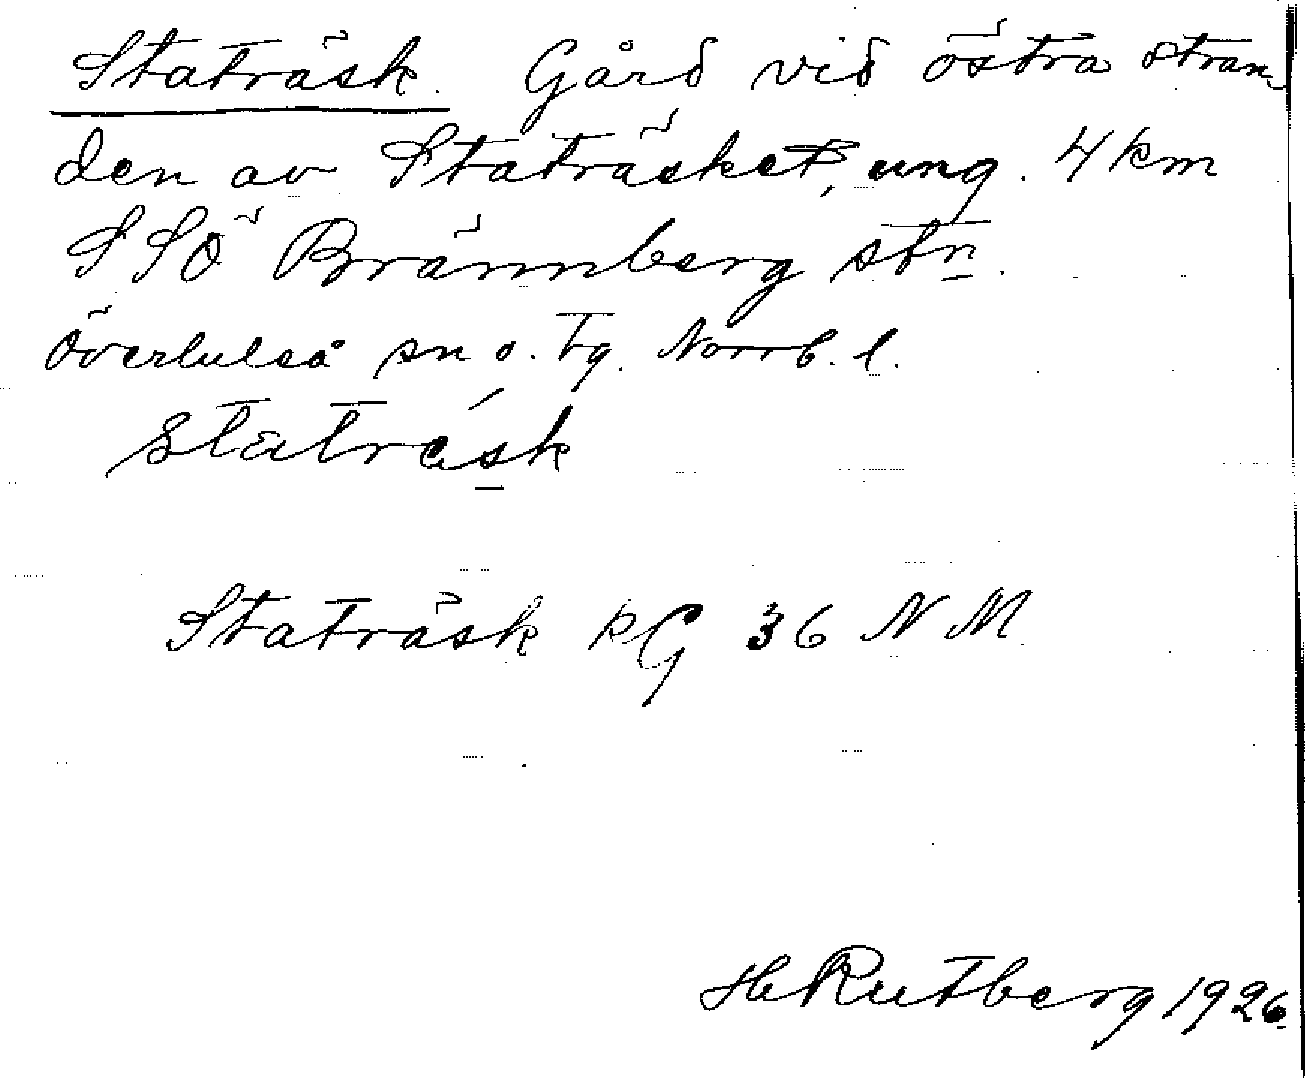 Staträsk. Gård vid östra stran
den av Staträsket, ung. 4 km
SSÖ Brännberg stn.
Överluleå sn o. tg. Norrb. l.
statrásk
Staträsk KG 36 NM
H Rutberg 1926.